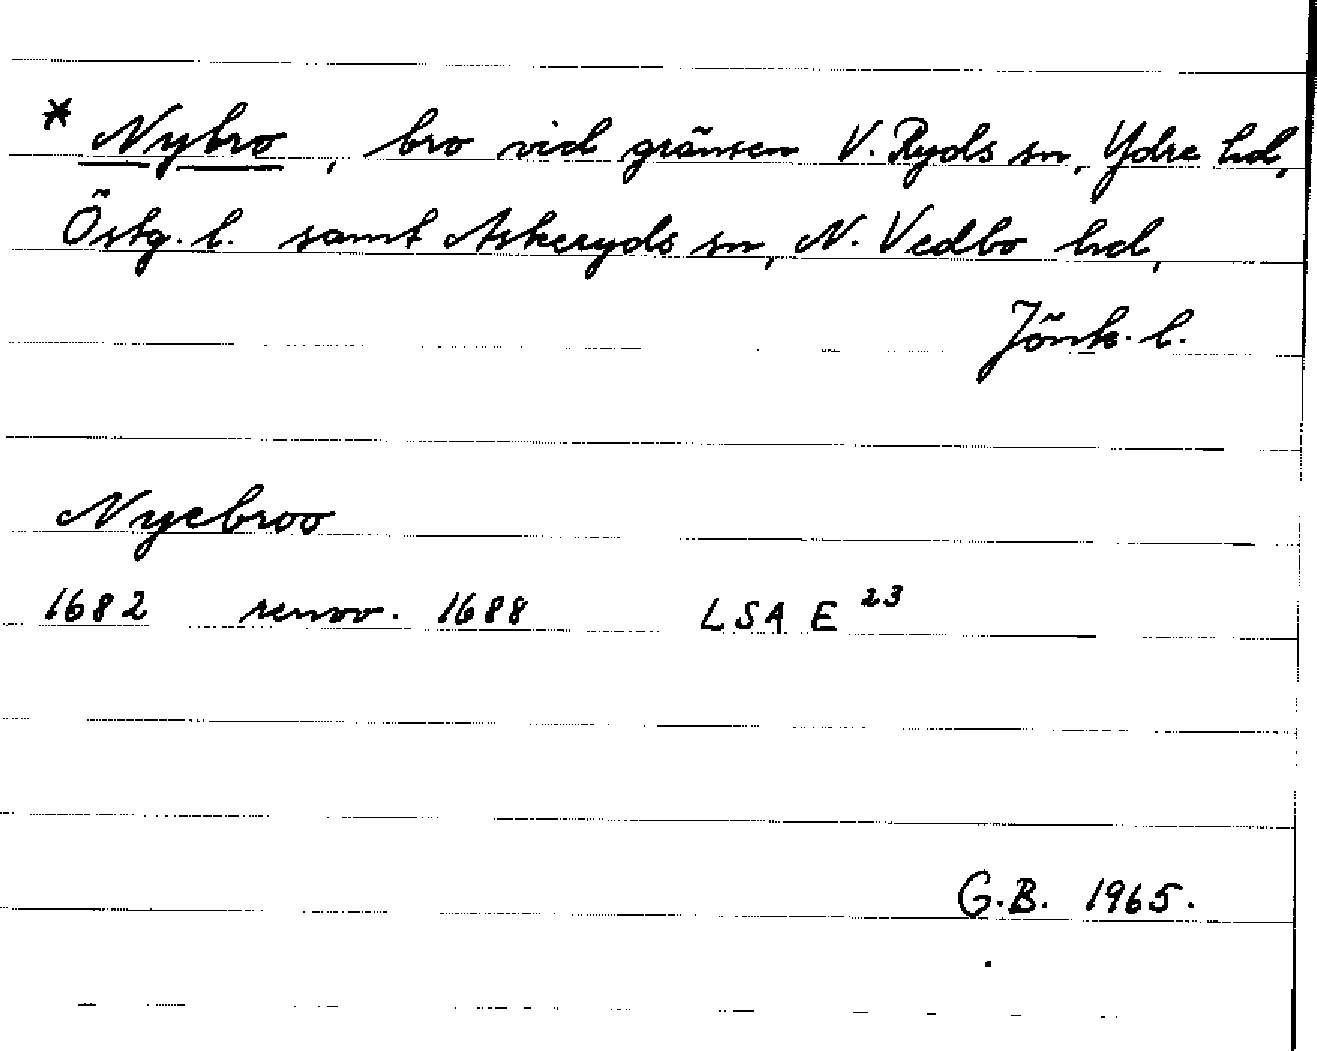 * Nybro, bro vid gränsen V. Ryds sn, Ydre hd,
Östg. l. samt Askeryds sn, N. Vedbo hd,
Jönk. l.
Nyebroo
1682 renov. 1688 LSA E 23
G.B. 1965.